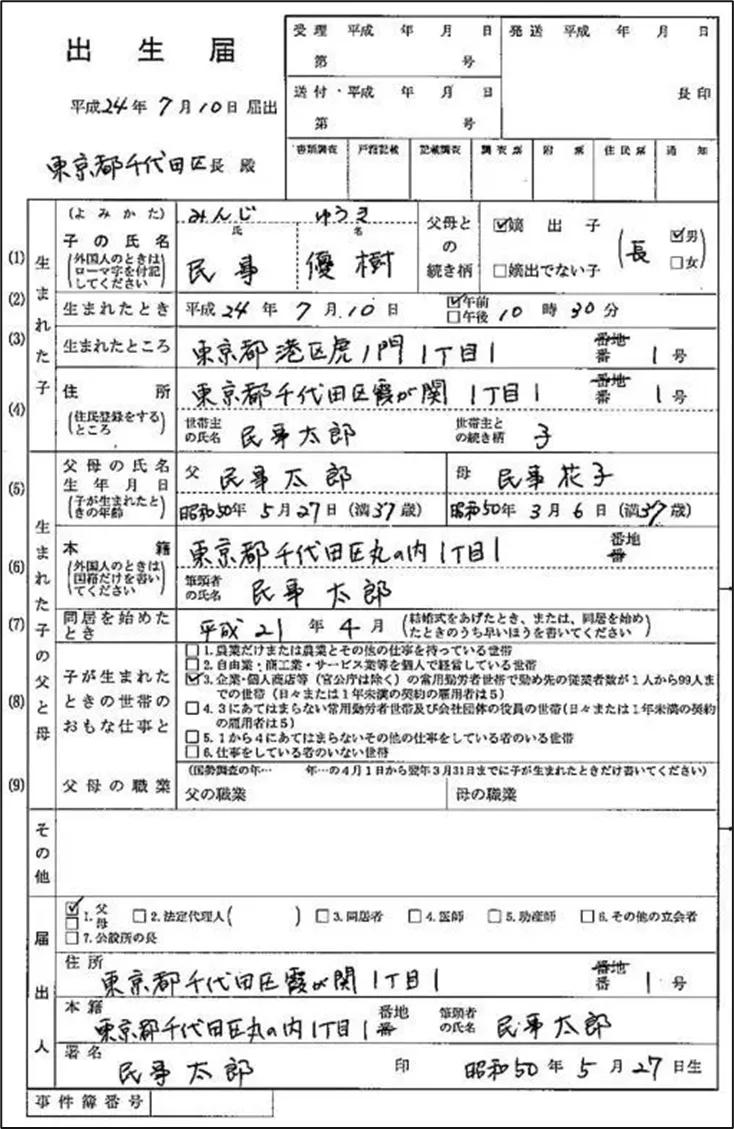 出生届
平成24年7月10日届出
東京都千代田区長 殿
受理 平成 年 月 日
第 号
送付・平成 年 月 日
第 号
発送 平成 年 月 日
長印
書類調査 戸籍記載 記載調査 調査票 附票 住民票 通知
生まれた子
(1)
(よみかた) みんじ ゆうき
子の氏名
(外国人のときはローマ字を付記してください)
氏 名
民事 優樹
父母との続き柄
☑嫡出子
□嫡出でない子
(長 ☑男 □女)
(2) 生まれたとき 平成24年7月10日 ☑午前 □午後 10時30分
(3) 生まれたところ 東京都港区虎ノ門1丁目1 番地 番 1号
(4) 住所
(住民登録をするところ)
東京都千代田区霞が関1丁目1 番地 番 1号
世帯主の氏名 民事太郎 世帯主との続き柄 子
生まれた子の父と母
(5) 父母の氏名
生年月日
(子が生まれたときの年齢)
父 民事太郎 母 民事花子
昭和50年5月27日(満37歳) 昭和50年3月6日(満37歳)
(6) 本籍
(外国人のときは国籍だけを書いてください)
東京都千代田区丸の内1丁目1 番地 番
筆頭者の氏名 民事太郎
(7) 同居を始めたとき 平成21年4月 (結婚式をあげたとき、または、同居を始めたときのうち早いほうを書いてください)
(8) 子が生まれたときの世帯のおもな仕事と
□1.農業だけまたは農業とその他の仕事を持っている世帯
□2.自由業・商工業・サービス業等を個人で経営している世帯
☑3.企業・個人商店等(官公庁は除く)の常用勤労者世帯で勤め先の従業者数が1人から99人までの世帯(日々または1年未満の契約の雇用者は5)
□4.3にあてはまらない常用勤労者世帯及び会社団体の役員の世帯(日々または1年未満の契約の雇用者は5)
□5.1から4にあてはまらないその他の仕事をしている者のいる世帯
□6.仕事をしている者のいない世帯
(9) 父母の職業
(国勢調査の年… 年…の4月1日から翌年3月31日までに子が生まれたときだけ書いてください)
父の職業 母の職業
その他
届出人
☑1.父
□母
□2.法定代理人( ) □3.同居者 □4.医師 □5.助産師 □6.その他の立会者
□7.公設所の長
住所
東京都千代田区霞が関1丁目1 番地 番 1号
本籍
東京都千代田区丸の内1丁目1 番地 番 筆頭者の氏名 民事太郎
署名
民事太郎 印 昭和50年5月27日生
事件簿番号